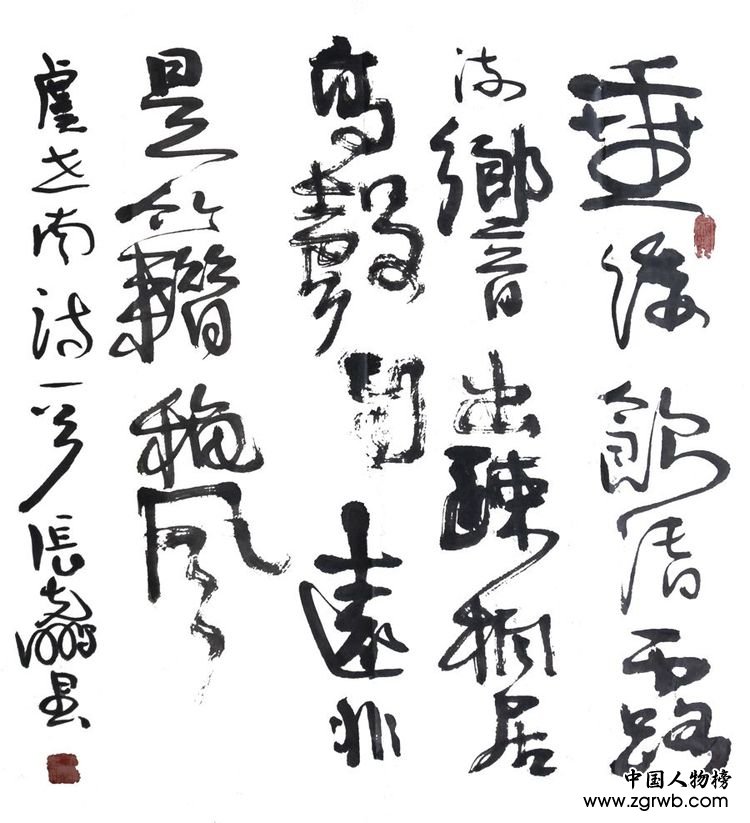 垂緌飲清露
流響出疎桐居
高聲自遠非
是籍秋風
虞世南詩一首 張
中国人物榜
www.zgrwb.com